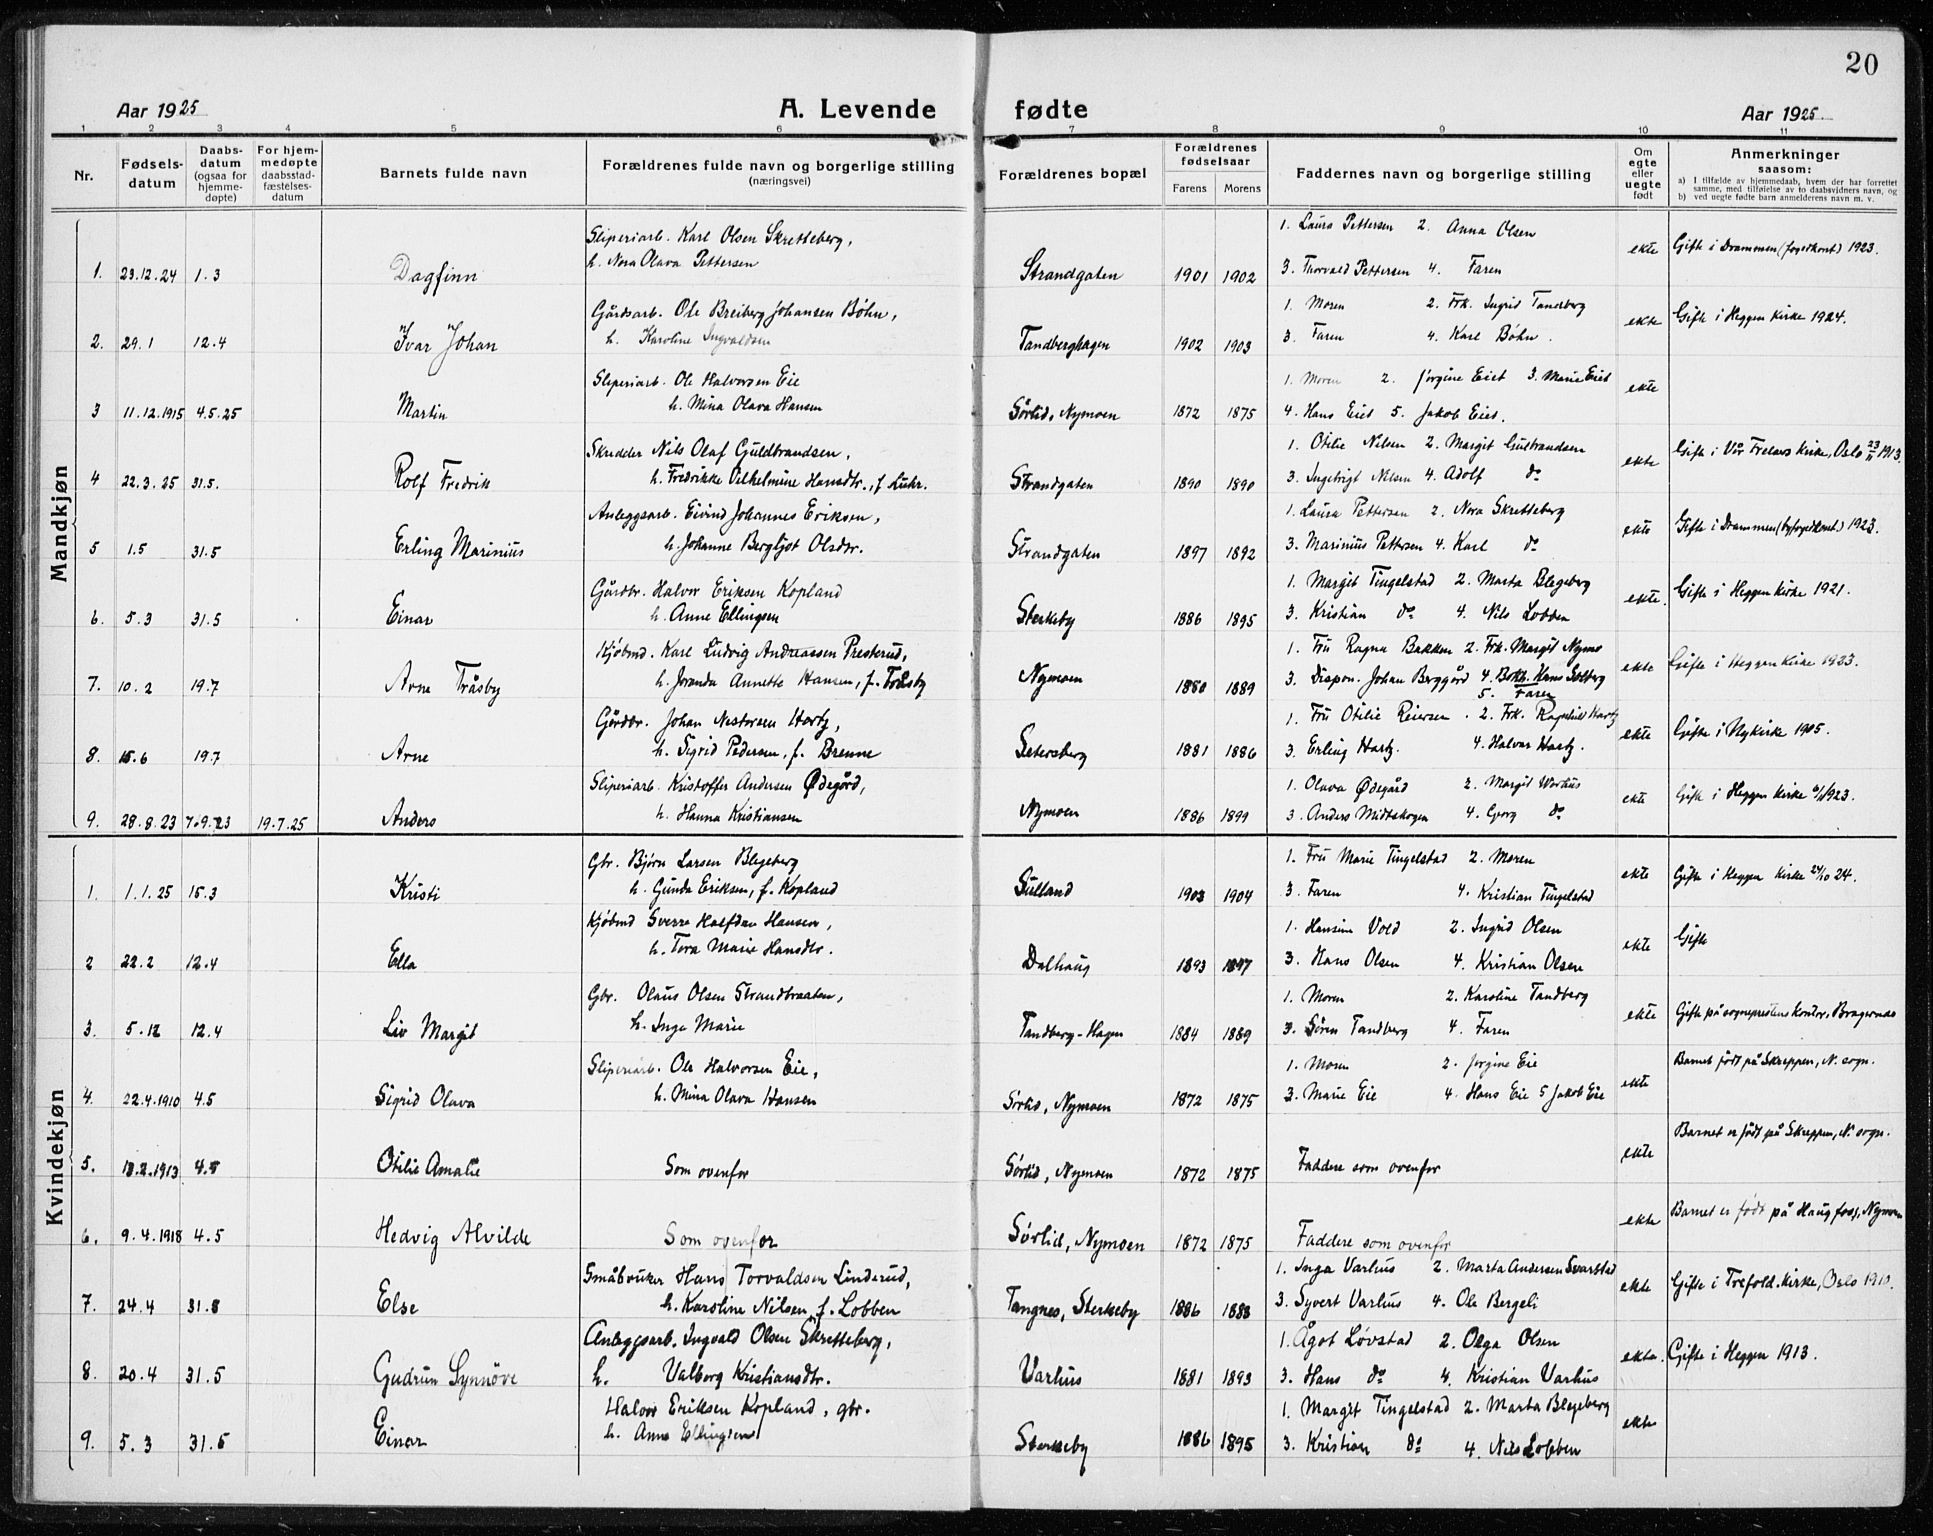 20
Aar 1925
A. Levende fødte
Aar 1925
1 2 3 4 5 6 7 8 9 10 11
Nr.
Fødsels-
datum
Daabs-
datum
(ogsaa for
hjemme-
døpte)
For hjem-
medøpte
daabsstad-
fæstelses-
datum
Barnets fulde navn
Forældrenes fulde navn og borgerlige stilling
(næringsvei)
Forældrenes bopæl
Forældrenes
fødselsaar
Farens Morens
Faddernes navn og borgerlige stilling
Om
egte
eller
uegte
født
Anmerkninger
saasom:
a) I tilfælde av hjemmedaab, hvem der har forrettet
samme, med tilføielse av to daabsvidners navn, og
b) ved uegte fødte barn anmelderens navn m. v.
Mandkjøn
Sliperiarb. Karl Olsen Skretteberg, 1. Laura Pettersen 2. Anna Olsen
1. 23.12.24 1.3 Dagfinn h. Nora Olava Pettersen Strandgaten 1901 1902 3. Thorvald Pettersen 4. Faren ekte Gifte i Drammen (fogedkont) 1923.
Gårdsarb. Ole Breiberg Johansen Bøhn, 1. Moren 2. Frk. Ingrid Tandberg
2. 29.1 12.4 Ivar Johan h. Karoline Ingvaldsen Tandberghagen 1902 1903 3. Faren 4. Karl Bøhn. ekte Gifte i Heggen Kirke 1924.
Sliperiarb. Ole Halvorsen Eie 1. Moren 2. Jørgine Eiet 3. Marie Eiet
3 11.12.1915 4.5.25 Martin h. Mina Olava Hansen Sørlid, Nymoen 1872 1875 4. Hans Eiet 5. Jakob Eiet. ekte
Skredder Nils Olaf Guldbrandsen, 1. Otilie Nilsen 2. Margit Gustrandsen
4 22.3.25 31.5. Rolf Fredrik h. Fredrikke Vilhelmine Hansdtr., f. Luhr. Strandgaten 1890 1890 3. Ingebrigt Nilsen 4. Adolf do ekte Gifte i Vår Frelsers Kirke, Oslo 23/11 1913.
Anleggsarb. Eivind Johannes Eriksen, 1. Laura Pettersen 2. Nora Skretteberg
5 1.5 31.5 Erling Marinius h. Johanne Bergljot Olsdtr. Strandgaten 1897 1892 3. Marinius Pettersen 4. Karl do ekte Gifte i Drammen (byfogedkont.) 1923.
Gårdbr. Halvor Eriksen Kopland 1. Margit Tingelstad 2. Marta Blegeberg
6. 5.3 31.5 Einar h. Anne Ellingsen Sterkeby 1886 1895 3. Kristian do 4. Nils Lobben ekte. Gifte i Heggen Kirke 1921.
Kjøbmd. Karl Ludvig Andreassen Presterud, 1. Fru Ragna Bakken 2. Frk. Margit Nymo
7. 10.2 19.7 Arne Tråsby h. Joranda Annette Hansen, f. Tråsby Nymoen 1880 1889 3. Dispon. Johan Berggård 4. Bokh. Hans Solberg ekte Gifte i Heggen Kirke 1923.
5. Faren
Gårdbr. Johan Nestorsen Hartz, 1. Fru Otilie Reiersen. 2. Frk. Ragnhild Hartz
8. 15.6 19.7 Arne h. Sigrid Pedersen, f. Brenne Setersberg 1881 1886 3. Erling Hartz. 4. Halvar Hartz. ekte Gifte i Nykirke 1905.
Sliperiarb. Kristoffer Andersen Ødegård, 1. Olava Ødegård 2. Margit Warhus
9. 28.8.23 7.9.23 19.7.25 Anders h. Hanna Kristiansen Nymoen 1886 1899 3. Anders Midtskogen 4. Georg do ekte Gifte i Heggen Kirke 1923.
Kvindekjøn
Gbr. Bjørn Larsen Blegeberg 1. Fru Marie Tingelstad 2. Moren
1. 1.1.25 15.3 Kristi h. Gunda Eriksen, f. Kopland Sulland 1903 1904 3. Faren 4. Kristian Tingelstad ekte Gifte i Heggen Kirke 24/10 24.
Kjøbmd Sverre Halfdan Hansen, 1. Hansine Vold 2. Ingrid Olsen
2 22.2 12.4 Ella h. Tora Marie Hansdtr. Dalhaug 1893 1897 3. Hans Olsen 4. Kristian Olsen ekte Gifte
Gbr. Olaus Olsen Strandbraaten, 1. Moren 2. Karoline Tandberg
3. 5.12 12.4 Liv Margit h. Inga Marie Tandberg-Hagen 1884 1889 3. Søren Tandberg 4. Faren ekte Gifte på sogneprestens kontor, Bragernes
Sliperiarb. Ole Halvorsen Eie, 1. Moren 2. Jørgine Eie
4. 22.4.1910 4.5 Sigrid Olava h. Mina Olava Hansen Sørlid, Nymoen 1872 1875 3. Marie Eie 4. Hans Eie 5 Jakob Eie ekte Barnet født på Skreppen, N. sogn.
5. 13.2.1913 4.5 Otilie Amalie Som ovenfor Sørlid, Nymoen 1872 1875 Faddere som ovenfor ekte Barnet er født på Skreppen, N. sogn.
6. 9.4.1918 4.5 Hedvig Alvilde Som ovenfor Sørlid, Nymoen 1872 1875 Faddere som ovenfor ekte Barnet er født på Haugfoss, Nymoen
Småbruker Hans Torvaldsen Linderud, 1. Inga Varhus 2. Marta Andersen Svarstad
7. 24.4 31.8 Else h. Karoline Nilsen, f. Lobben Tangnes, Sterkeby 1886 1888 3. Syvert Varhus 4. Ole Bergeli ekte Gifte i Trefold. Kirke, Oslo 1910.
Anleggsarb. Ingvald Olsen Skretteberg, 1. Ågot Løvstad 2. Olga Olsen
8. 20.4 31.5 Gudrun Synnöve h. Valborg Kristiansdtr. Varhus 1881 1893 3. Hans do 4. Kristian Varhus ekte. Gifte i Heggen 1913.
Halvor Eriksen Kopland, gbr. 1. Margit Tingelstad 2. Marta Blegeberg
9. 5.3 31.5 Einar h. Anne Ellingsen Sterkeby 1886 1895 3. Kristian do 4. Nils Lobben ekte